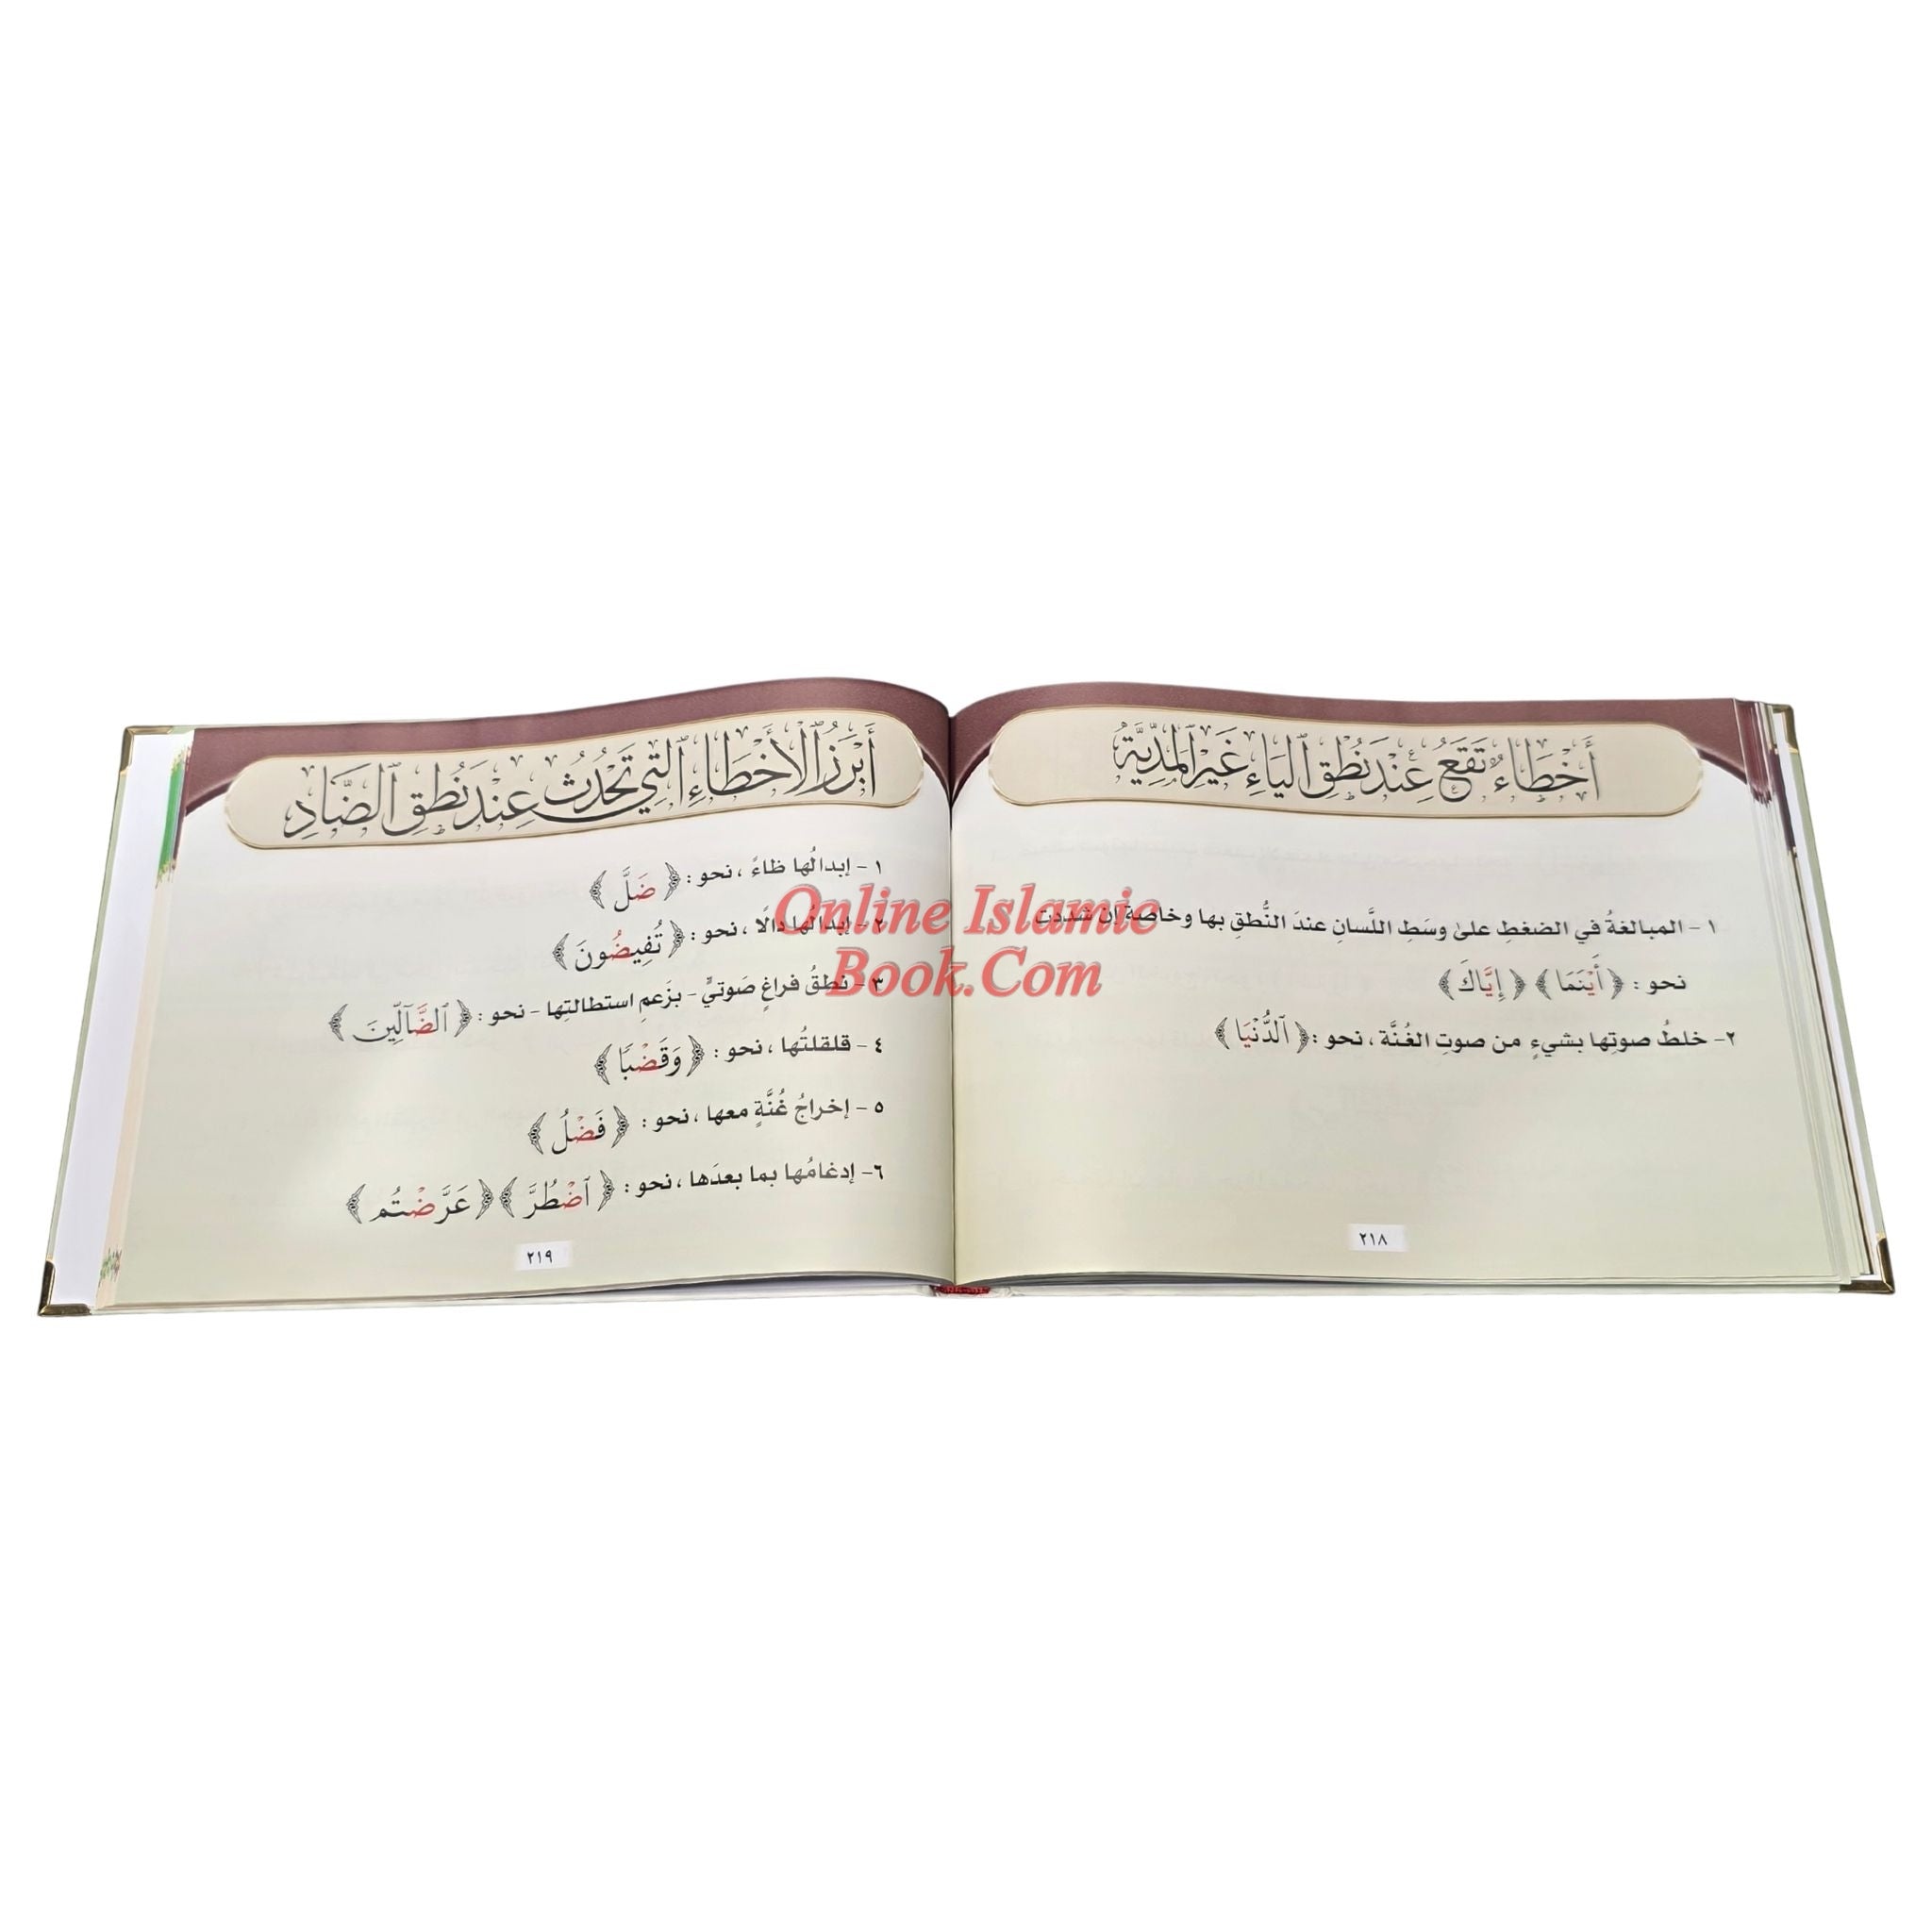 أَخْطَاءٌ تَقَعُ عِنْدَ نُطْقِ ٱليَاءِ غَيْرِ ٱلمَدِّيَّةِ
١ - المبالغةُ في الضغطِ على وسَطِ اللَّسانِ عندَ النُّطقِ بها وخاصة إن شددت
نحو : ﴿ أَيْنَمَا ﴾ ﴿ إِيَّاكَ ﴾
٢- خلطُ صوتِها بشيءٍ من صوتِ الغُنَّة ، نحو : ﴿ ٱلدُّنْيَا ﴾
٢١٨
أَبْرَزُ ٱلْأَخْطَاءِ ٱلتِي تَحْدُثُ عِنْدَ نُطْقِ ٱلضَّادِ
١ - إبدالُها ظاءً ، نحو : ﴿ ضَلَّ ﴾
٢ - إبدالُها دالًا ، نحو : ﴿ تُفِيضُونَ ﴾
٣ - نطقُ فراغٍ صَوتيٍّ - بزَعمِ استطالتِها - نحو : ﴿ ٱلضَّآلِّينَ ﴾
٤ - قلقلتُها ، نحو : ﴿ وَقَضْبًا ﴾
٥ - إخراجُ غُنَّةٍ معها ، نحو : ﴿ فَضْلُ ﴾
٦- إدغامُها بما بعدَها ، نحو : ﴿ ٱضْطُرَّ ﴾ ﴿ عَرَّضْتُم ﴾
٢١٩
Online Islamic
Book.Com